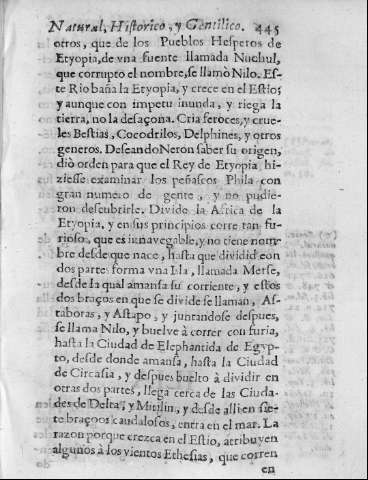 Natural, Historico, y Gentilico. 445
otros, que de los Pueblos Hesperos de
Etyopia, de vna fuente llamada Nuchul,
que corrupto el nombre, se llamò Nilo. Es-
te Rio baña la Etyopia, y crece en el Estio;
y aunque con impetu inunda, y riega la
tierra, no la desaçona. Cria feroces, y crue-
les Bestias, Cocodrilos, Delphines, y otros
generos. Deseando Neròn saber su origen,
diò orden para que el Rey de Etyopia hi-
ziesse examinar los peñascos Phila con
gran numero de gente, y no pudie-
ron descubrirle. Divide la Africa de la
Etyopia, y en sus principios corre tan fu-
rioso, que es innavegable, y no tiene nom-
bre desde que nace, hasta que dividido en
dos partes forma vna Isla, llamada Meroe,
desde la qual amansa su corriente, y estos
dos braços en que se divide se llaman, As-
taboras, y Astapo, y juntandose despues,
se llama Nilo, y buelve à correr con furia,
hasta la Ciudad de Elephantida de Egyp-
to, desde donde amansa, hasta la Ciudad
de Circasia, y despues buelto à dividir en
otras dos partes, llega cerca de las Ciuda-
des de Delta, y Mitilin, y desde alli en sie-
te braços caudalosos, entra en el mar. La
razon porque crezca en el Estio, atribuyen
algunos à los vientos Ethesias, que corren
en